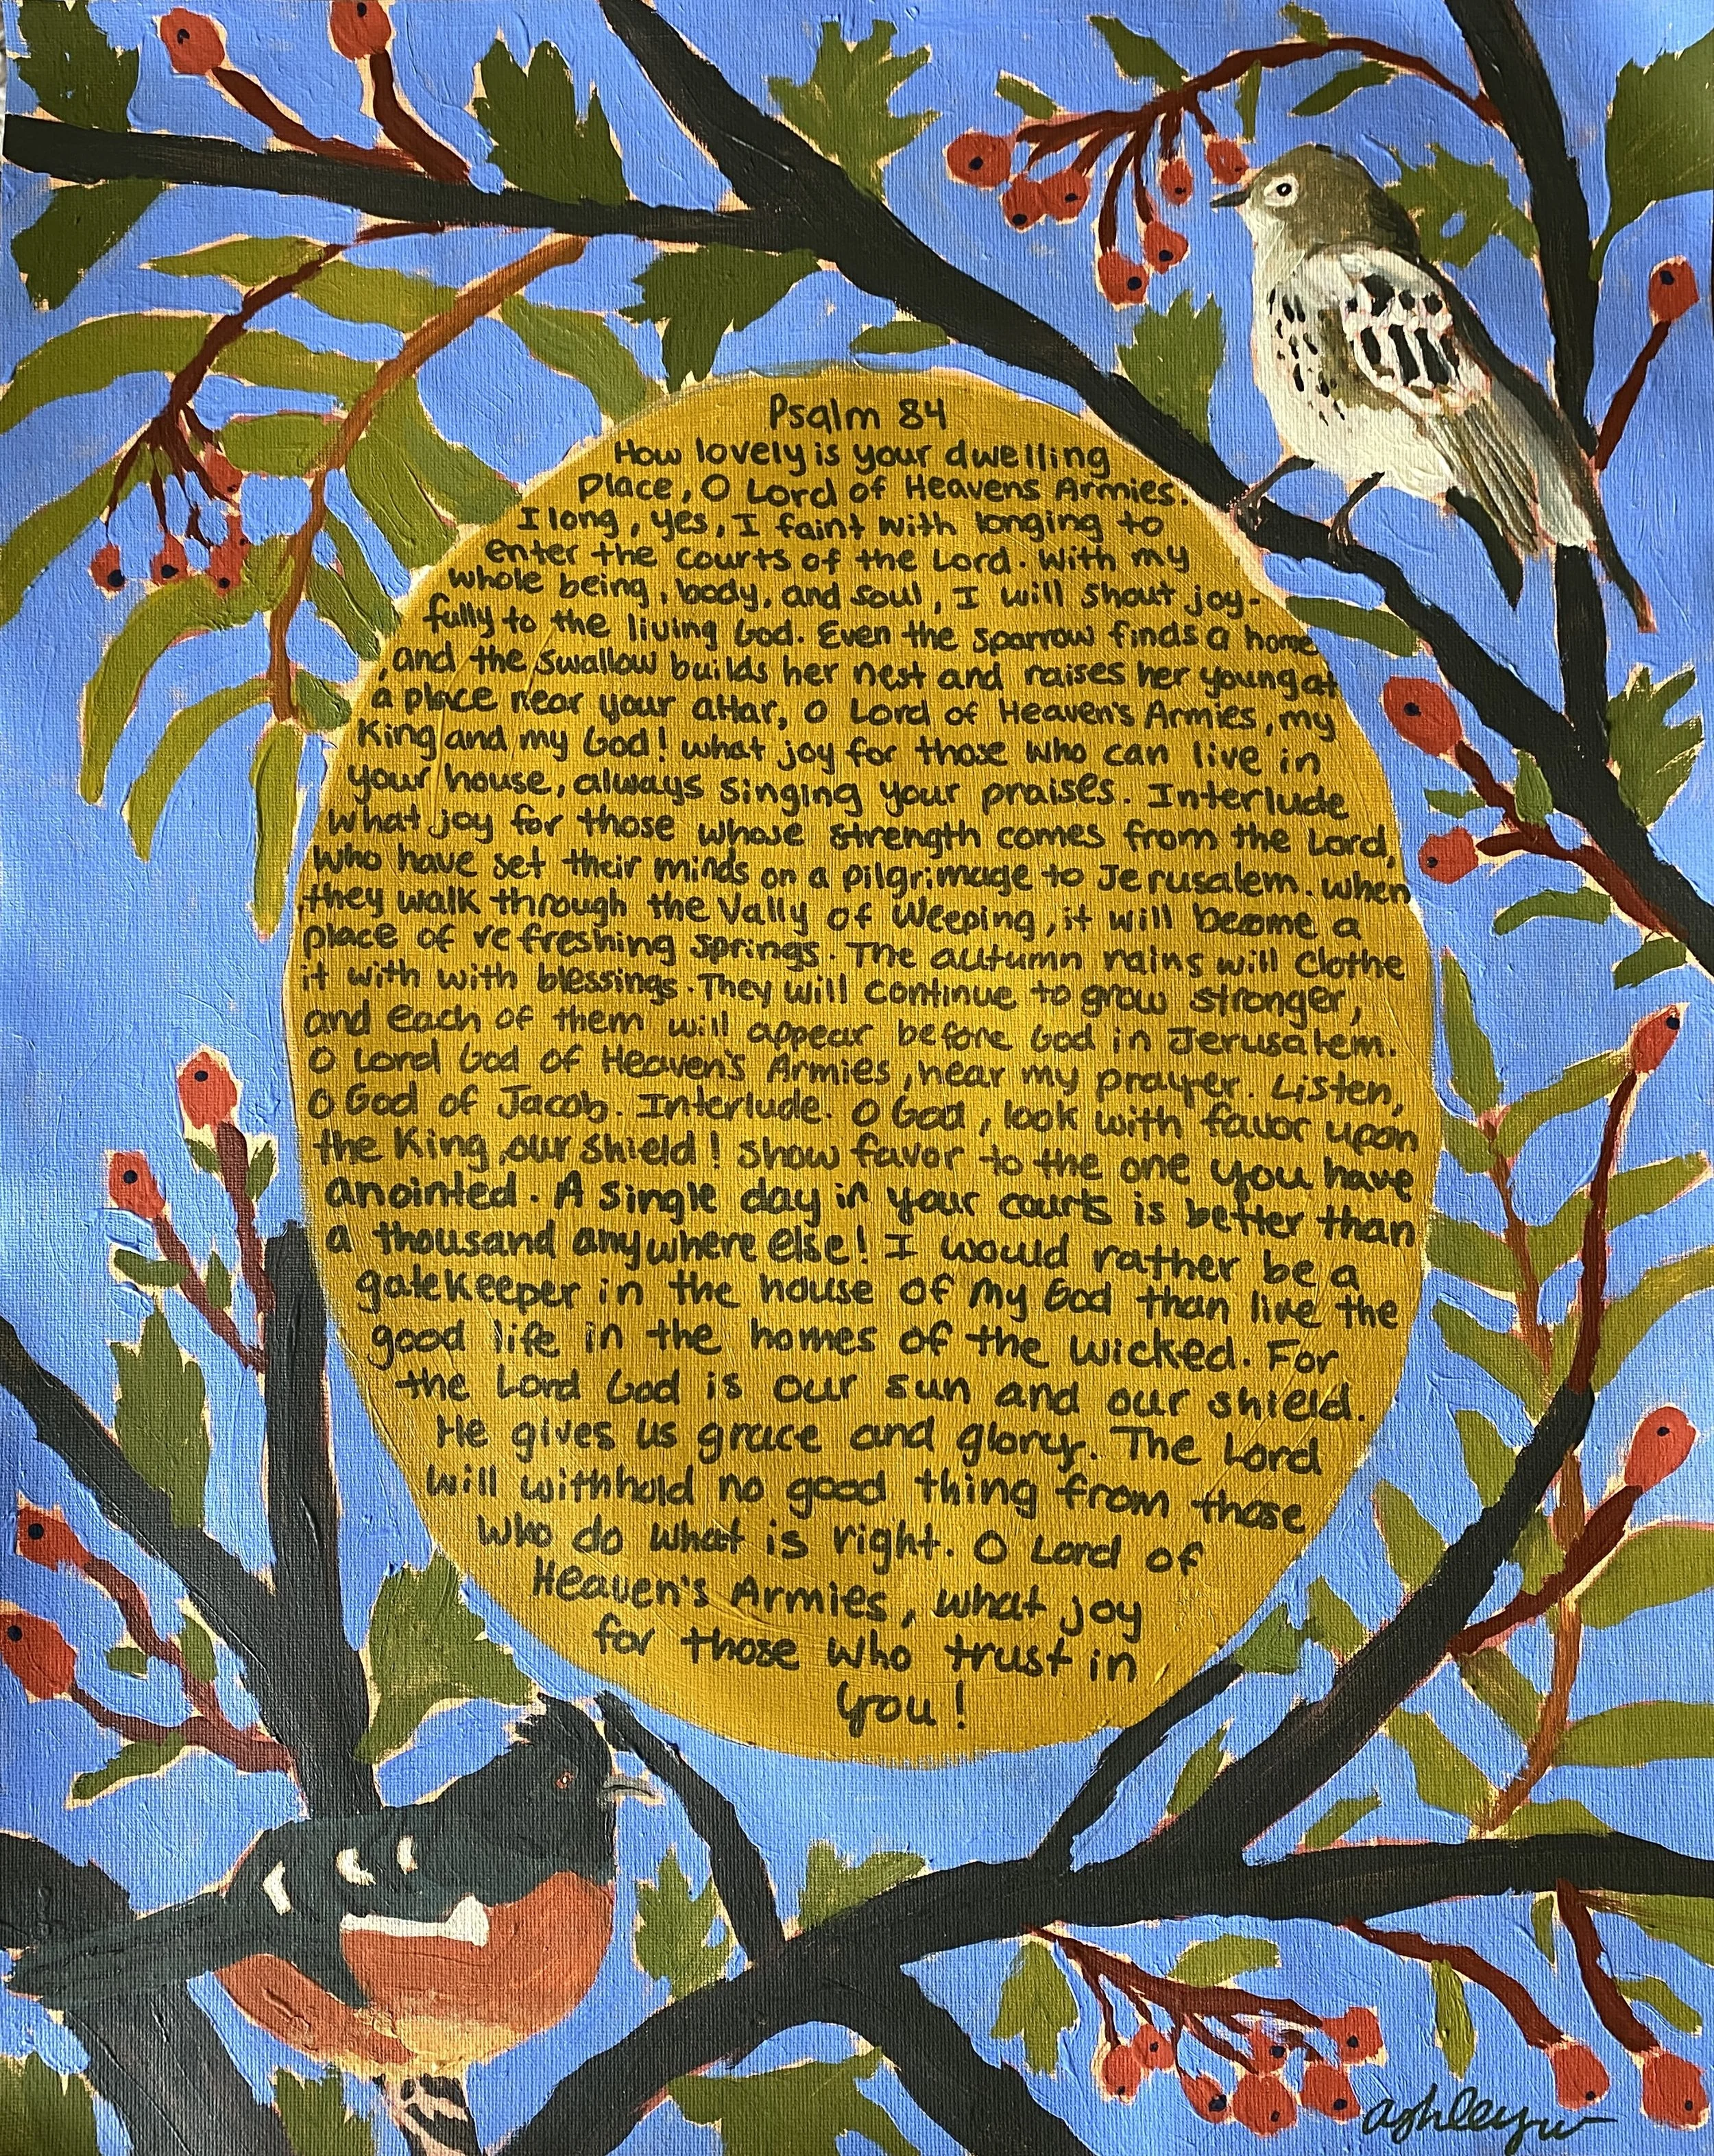 Psalm 84
How lovely is your dwelling
place, O Lord of Heavens Armies.
I long, yes, I faint with longing to
enter the courts of the Lord. With my
whole being, body, and soul, I will shout joy-
fully to the living God. Even the sparrow finds a home
, and the swallow builds her nest and raises her young at
a place near your altar, O Lord of Heaven's Armies, my
King and my God! what joy for those who can live in
your house, always singing your praises. Interlude
what joy for those whose strength comes from the Lord,
who have set their minds on a pilgrimage to Jerusalem. when
they walk through the Vally of Weeping, it will become a
place of refreshing springs. The autumn rains will clothe
it with with blessings. They will continue to grow stronger,
and each of them will appear before God in Jerusalem.
O Lord God of Heaven's Armies, hear my prayer. Listen,
O God of Jacob. Interlude. O God, look with favor upon
the King, our shield! Show favor to the one you have
anointed. A single day in your courts is better than
a thousand anywhere else! I would rather be a
gatekeeper in the house of my God than live the
good life in the homes of the wicked. For
the Lord God is our sun and our shield.
He gives us grace and glory. The Lord
will withhold no good thing from those
who do what is right. O Lord of
Heaven's Armies, what joy
for those who trust in
you!
ashleyw